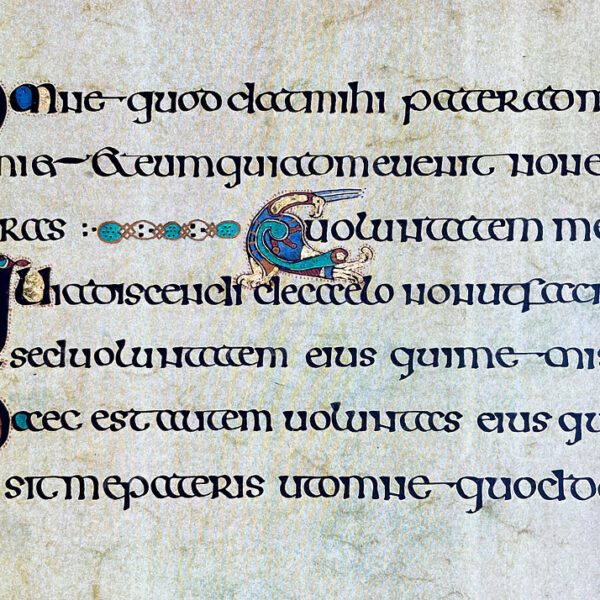 Omne quod datmihi pateradm
niet Eteumquiadmeuenit none
ras : uoluntatem me
Quiadiscendi decaelo nonutfaci
seduoluntatem eius quime mis
haec estautem uoluntas eius qu
sitmepateris utomne quodd